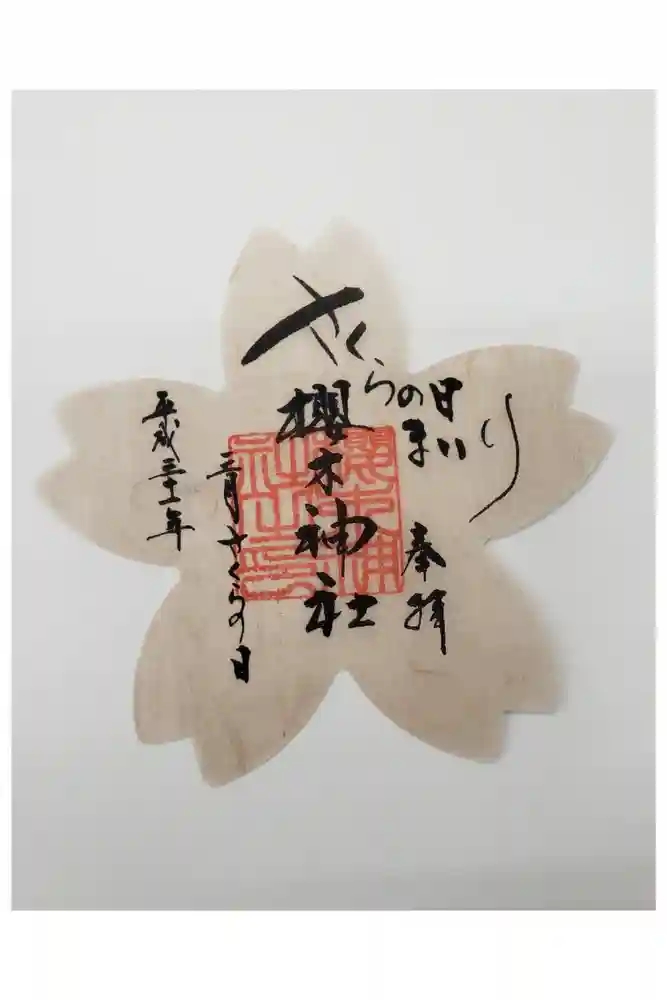 さくらの日
まいり
奉拝
櫻木神社
三月さくらの日
平成三十一年